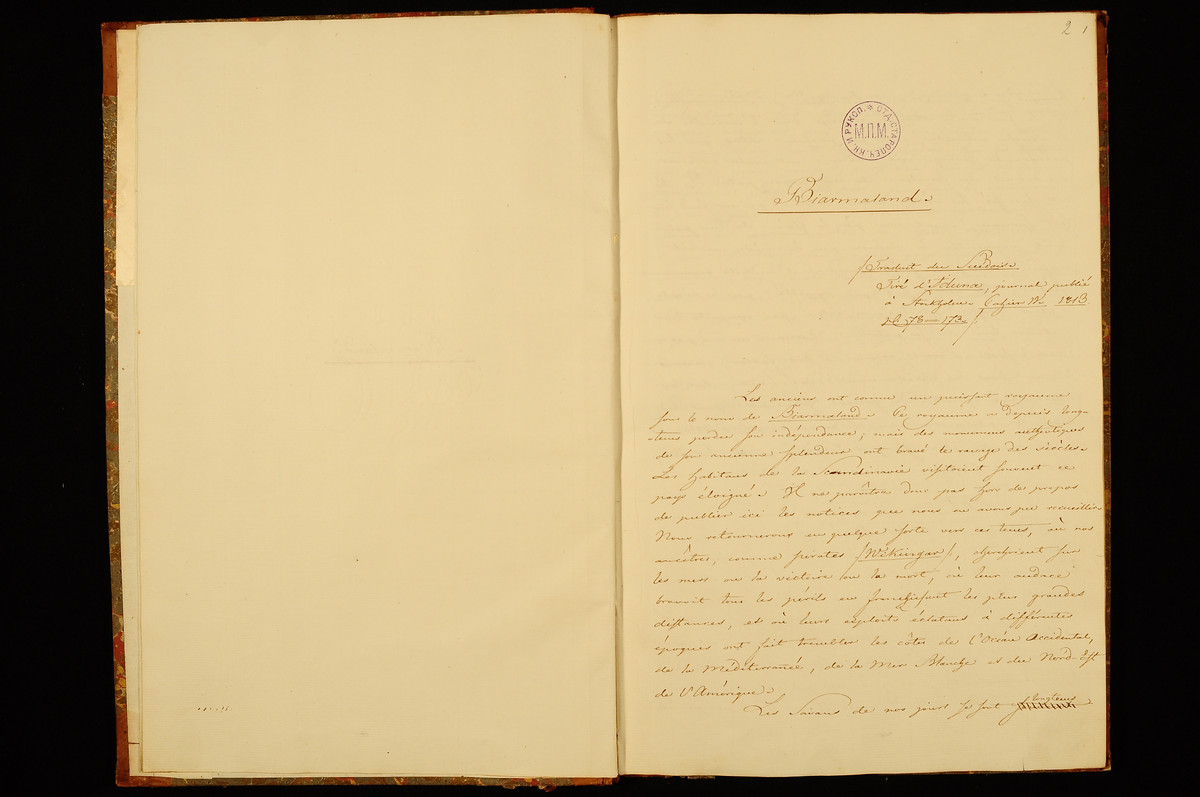 2 1
ОТД. СТАРОПЕЧ. КН. И РУКОП.
М.П.М.
Biarmaland.
/Traduit du Suédois.
Tiré d'Iduna, journal publié
à Stockholm. Cahier 1813
78 — 173./
Les anciens ont connu un puissant royaume
sous le nom de Biarmaland. Ce royaume a depuis long-
tems perdu son indépendance, mais des monumens authentiques
de son ancienne splendeur ont bravé le ravage des siècles.
Les habitans de la Scandinavie visitoient souvent ce
pays éloigné. Il ne paroîtra donc pas hors de propos
de publier ici les notices que nous en avons pu recueillir.
Nous retournerons en quelque sorte vers ces tems, où nos
ancêtres, comme pirates /Wikingar/, cherchoient sur
les mers ou la victoire ou la mort, où leur audace
bravoit tous les périls en franchissant les plus grandes
distances, et où leurs exploits éclatans à différentes
époques ont fait trembler les côtes de l'Océan Occidental,
de la Mediterranée, de la Mer Blanche et du Nord-Est
de l'Amérique.
Les Savans de nos jours se sont longtems